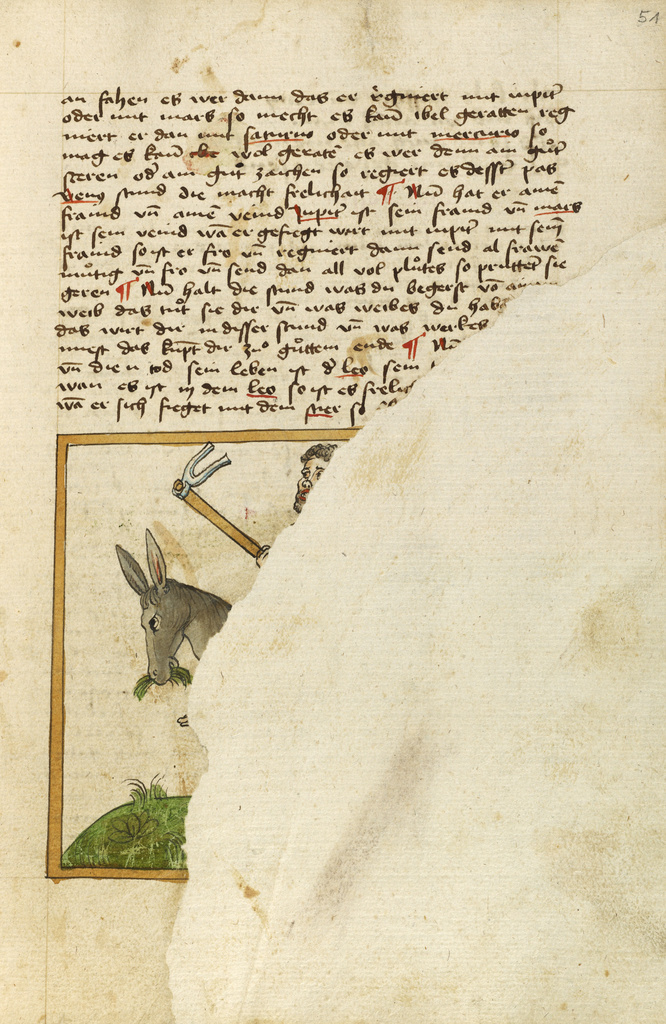 51
an fahen es wer dann das er regniert mit iupit͛
oder mit mars so mecht es kam̄ ibel geratten reg
niert er dan mit saturno oder mit mercurio so
mag es kam̄ wol geratē es wer denn am gůt͛
steren od͛ am gůt͛ zaichen so regiert es desst͛ pas
venus stund die macht frelichait ¶ Nū hat er ainē
fraind vn̄ ainē veind Iupit͛ ist sein fraind vn̄ mars
ist sein veind wā er gefiegt wirt mit iupit͛ mit seim̄
fraind so ist er fro vn̄ regniert dann send al frawē
můtig vn̄ fro vn̄ send dan all vol plůtes so prutten sie
geren ¶ Nū halt die stund was du begerst vō
weib das tůt sie dir vn̄ was weibes du hab
das wirt dir in disser stund vn̄ was werkes
miest das kupt dir zuͦ gůttem ende ¶ Nū
vn̄ die n tod sein leben ist d͛ leo sein
wan es ist in dem leo so ist es frelic
wā er sich fieget mit dem stier so